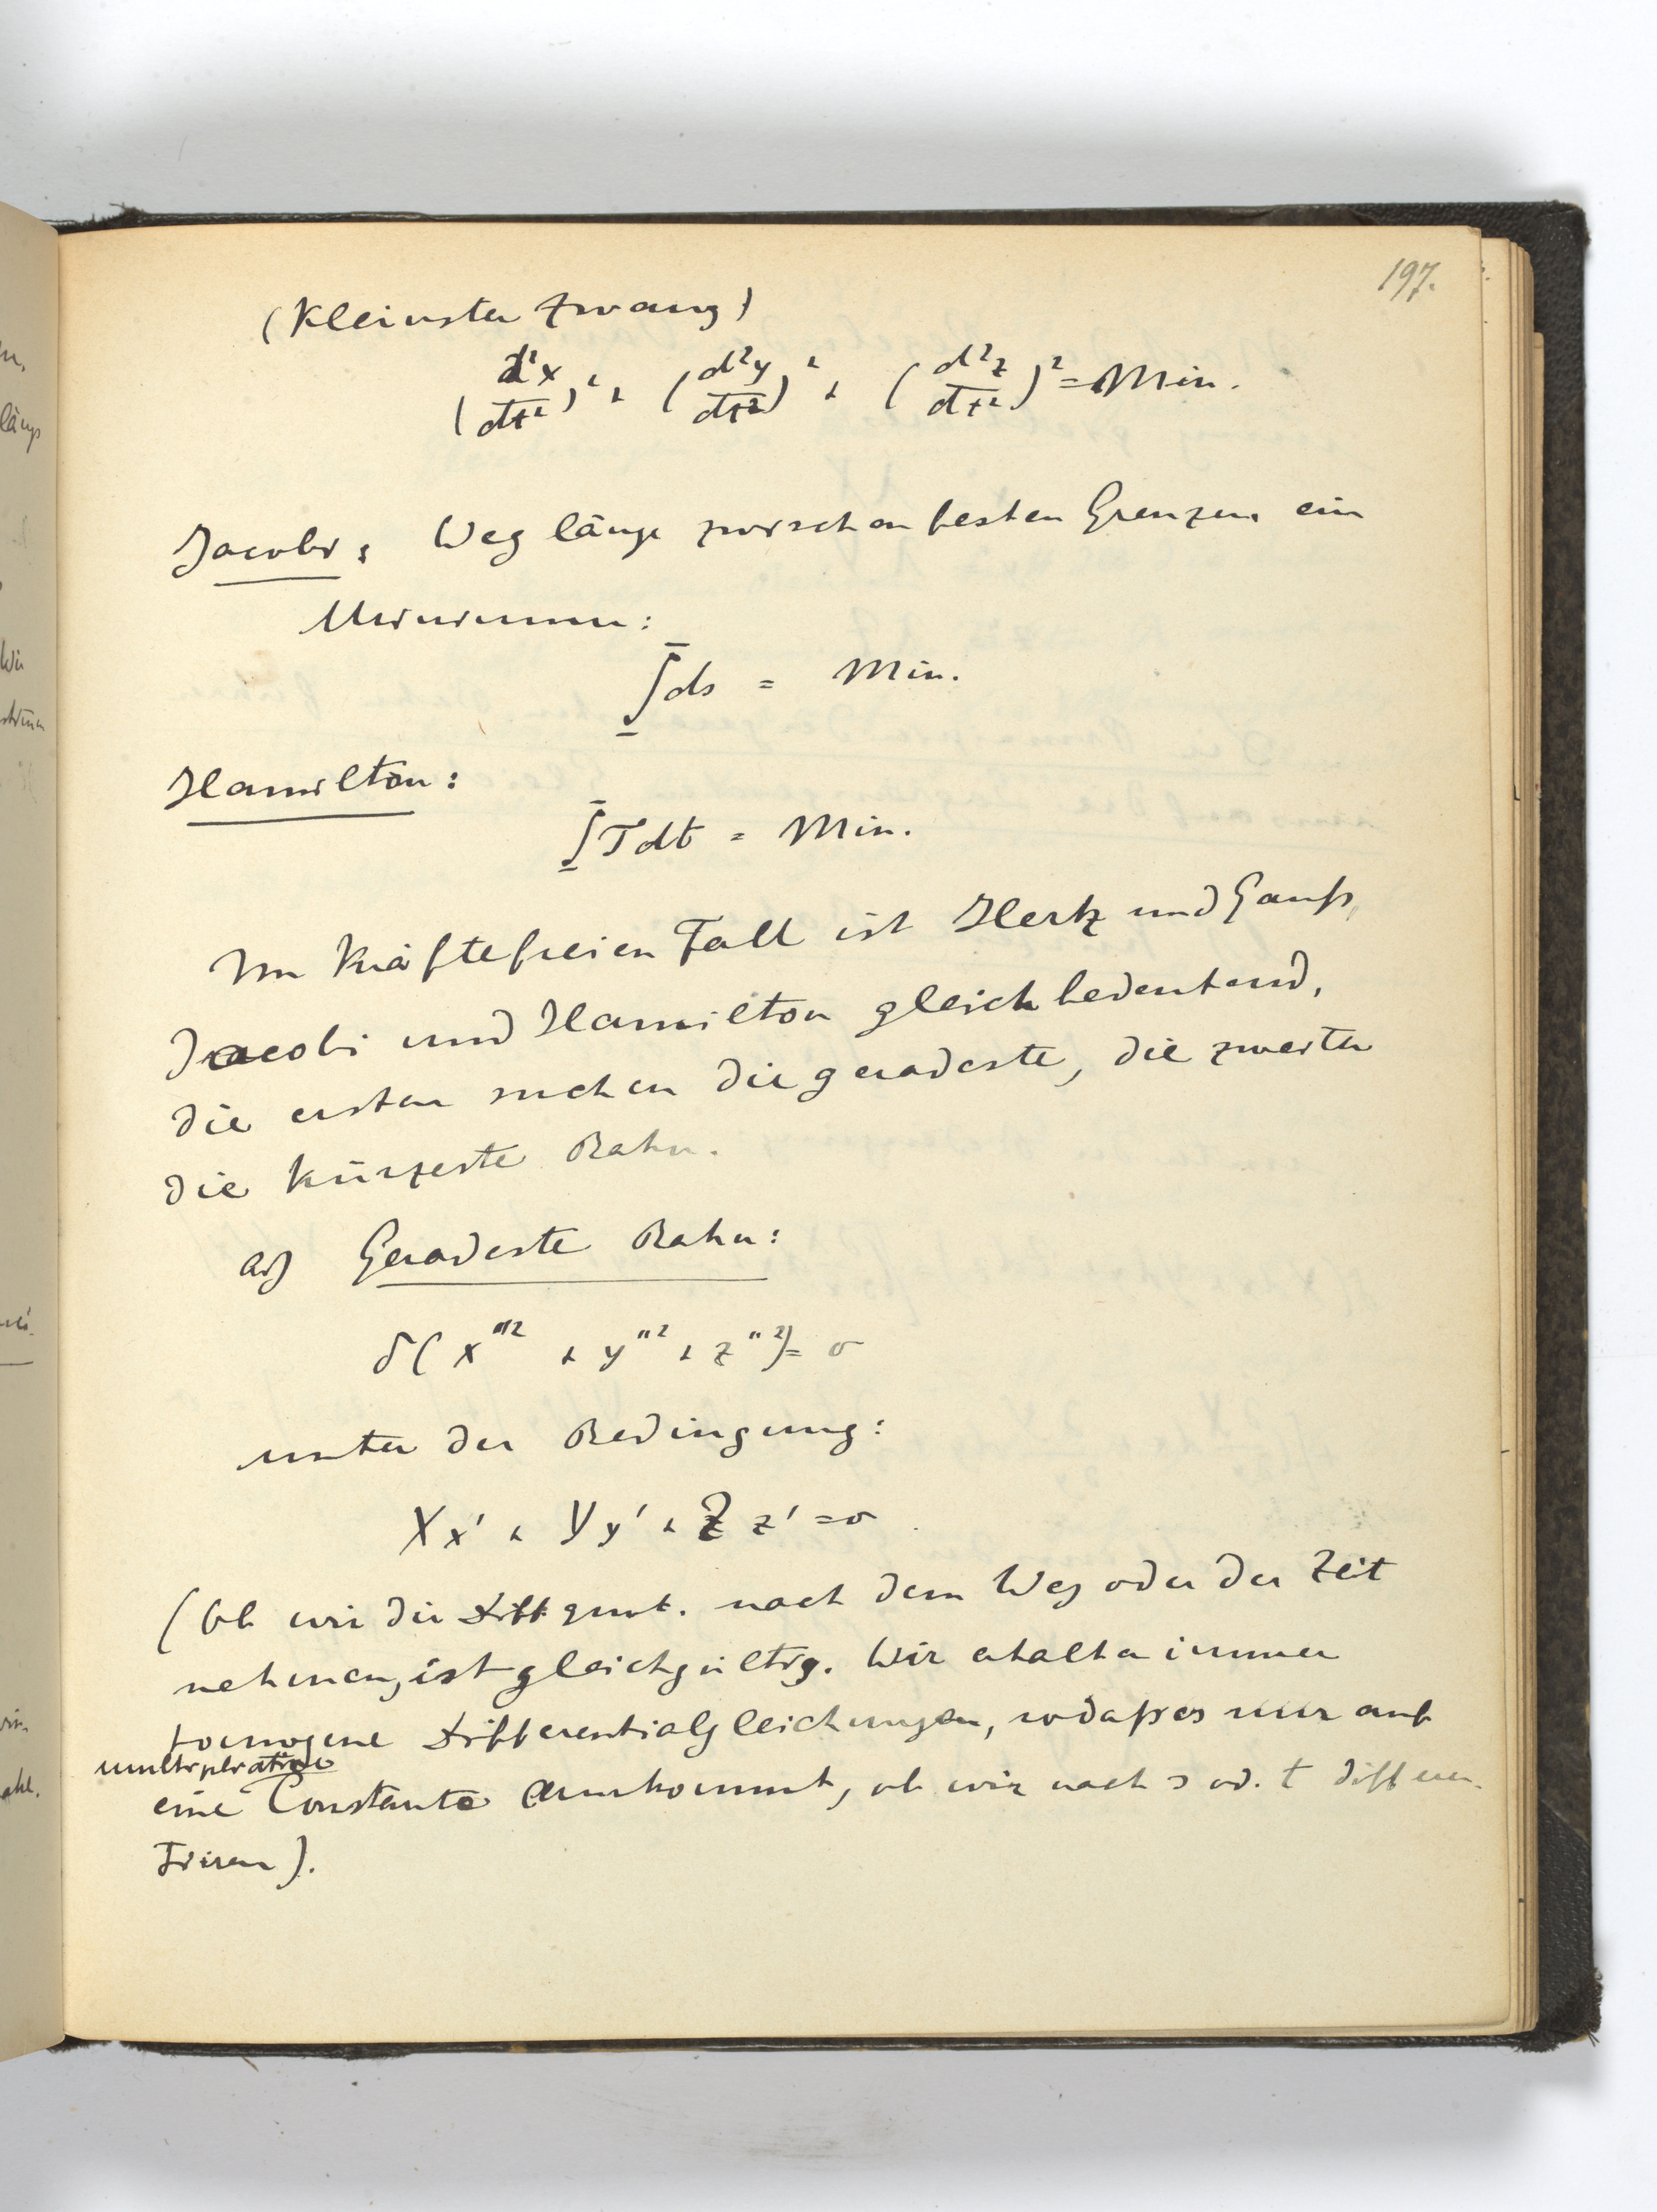 197.
(Kleinster Zwang)
(d²x/dt²)² + (d²y/dt²)² + (d²z/dt²)² = Min.
Jacobi: Weglänge zwischen festen Grenzen ein
Minimum:
∫ds = Min.
Hamilton:
∫Tdt = Min.
Im Kräftefreien Fall ist Hertz und Gauß,
Jacobi und Hamilton gleichbedeutend,
die ersten suchen die geradeste, die zweiten
die kürzeste Bahn.
a) Geradeste Bahn:
δ(x''² + y''² + z''²) = 0
unter der Bedingung:
Xx' + Yy' + Zz' = 0
(Ob wir die Diffquot. nach dem Weg oder der Zeit
nehmen, ist gleichgültig. Wir erhalten immer
homogene Differentialgleichungen, sodaß es nur auf
multiplikative
eine Constante ankommt, ob wir nach s od. t differen-
tiiren).